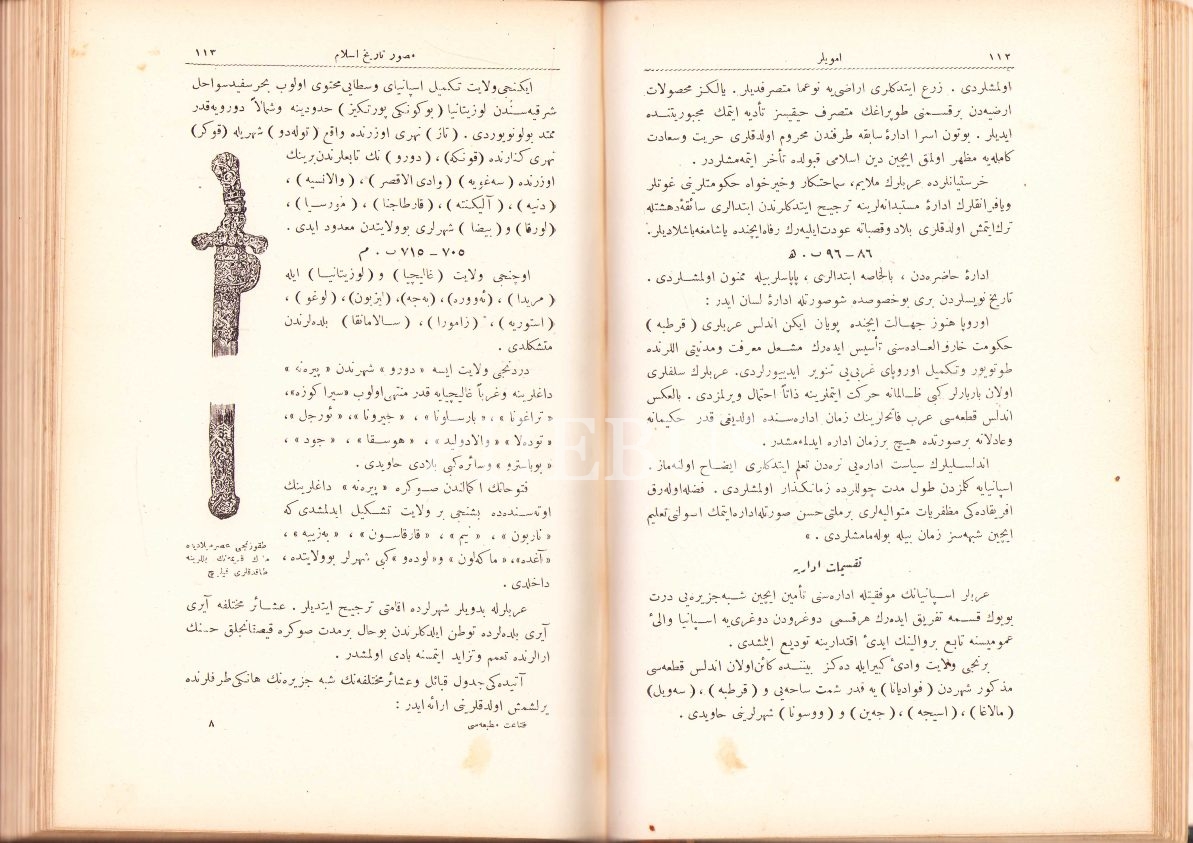 ١١٢
امويلر
اولمشلردى . زرع ايتدكلرى اراضى‌يه نوعما متصرفديلر . يالكز محصولات
ارضيه‌دن برقسمنى طوپراغك متصرف حقيقيسنه تأديه ايتمك مجبوريتنده
ايديلر . بوتون اسرا ادارهٔ سابقه طرفندن محروم اولدقلرى حريت وسعادت
كامله‌يه مظهر اولمق ايچين دين اسلامى قبولده تأخر ايتمه‌مشلردر .
خرستيانلرده عربلرك ملايم، سماحتكار وخيرخواه حكومتلرينى غوتلر
وياڧرانقلرك ادارهٔ مستبدانه‌لرينه ترجيح ايتدكلرندن ابتدالرى سائقهٔ دهشتله
ترك‌ايتمش اولدقلرى بلاد وقصباته عودت‌ايليه‌رك رفاه‌ايچنده ياشامغه‌باشلاديلر.
٨٦ – ٩٦ ب . هـ
ادارهٔ حاضره‌دن ، بالخاصه ابتدالرى ، پاپاسلربيله ممنون اولمشلردى .
تاريخ نويسلردن برى بوخصوصده شوصورتله ادارهٔ لسان ايدر :
اوروپا هنوز جهالت ايچنده پويان ايكن اندلس عربلرى ( قرطبه )
حكومت خارق‌العاده‌سنى تأسيس ايده‌رك مشعل معرفت ومدنيتى اللرنده
طوتويور وتكميل اوروپاى غربى‌يى تنوير ايدييورلردى. عربلرك سلفلرى
اولان باربارلر كبى ظالمانه حركت ايتملرينه ذاتاً احتمال ويرلمزدى . بالعكس
اندلس قطعه‌سى عرب فاتحلرينك زمان اداره‌سنده اولديغى قدر حكيمانه
وعادلانه برصورتده هيچ برزمان اداره ايدلمه‌مشدر .
اندلسليلرك سياست اداره‌يى نره‌دن تعلم ايتدكلرى ايضاح اولنه‌ماز .
اسپانيايه كلمزدن طول مدت چوللرده زمانكذار اولمشلردى . فضله‌اوله‌رق
افريقاده‌كى مظفريات متواليه‌لرى برملتى حسن صورتله‌اداره‌ايتمك اسولنى‌تعليم
ايچين شبهه‌سز زمان بيله بوله‌مامشلردى . »
تقسيمات اداريه
عربلر اسپانيانك موفقيتله اداره‌سنى تأمين ايچين شبه‌جزيره‌يى درت
بويوك قسمه تفريق ايده‌رك هرقسمى دوغرودن دوغرى‌يه اسپانيا والئ
عموميسنه تابع بروالينك ايدئ اقتدارينه توديع ايلشدى .
برنجى ولايت وادئ كبيرايله ده‌كز بيننده كائن‌اولان اندلس قطعه‌سى
مذكور شهردن ( غواديانا ) يه قدر شمت ساحه‌يى و ( قرطبه ) ، ( سه‌ويل)
( مالاغا ) ، ( اسيجه ) ، ( جه‌ين ) و ( ووسونا ) شهرلرينى حاويدى .
مصور تاريخ اسلام
١١٣
ايكنجى ولايت تكميل اسپانياى وسطايى‌محتوى اولوب بحرسفيدسواحل
شرقيه‌سندن لوزيتانيا ( بوكونكى پورتكيز ) حدودينه وشمالاً دورويه‌قدر
ممتد بولونويوردى . ( تاژ ) نهرى اوزرنده واقع ( توله‌دو ) شهريله (قوكر)
نهرى كنارنده (قونكه) ، ( دورو ) نك تابعلرندن‌برينك
اوزرنده ( سه‌غويه ) ( وادى‌الاقصر ) ، ( والانسيه ) ،
( دنيه ) ، ( آليكنته ) ، ( قارطاجنا ) ، ( مورسيا ) ،
(لورقا) و ( بيضا ) شهرلرى بوولايتدن معدود ايدى .
٧٠٥ – ٧١٥ ب . م
اوچنجى ولايت ( غاليچيا ) و ( لوزيتانيا ) ايله
( مريدا ) ، (ئه‌ووره)، (به‌جه)، (ليزبون)، (لوغو ) ،
( استوريه ) ، ( زامورا ) ، ( سالامانقا ) بلده‌لرندن
متشكلدى .
دردنجى ولايت ايسه « دورو » شهرندن « پيره‌نه »
داغلرينه وغرباً غاليچيايه قدر منتهى‌اولوب «سيراكوزه»،
« تراغونا » ، « بارساونا » ، « جيرونا »، « ئورجل »،
« توده‌لا » « والادوليد » ، « هوسقا » ، « جود » ،
« بوباسترو » وسائره‌كبى بلادى حاويدى .
فتوحاتك اكمالندن صوكره « پيره‌نه » داغلرينك
اوته‌سنده‌ده بشنجى بر ولايت تشكيل ايدلمشدى‌كه
« ناربون » ، « نيم » ، « قارقاسون » ، « به‌زييه » ،
« آغده »، « ماكه‌لون » و « لوده‌و » كبى شهرلر بوولايتده،
داخلدى .
طقوزنجى عصرميلاديده
طاقدقلرى قيليچ
عربلرله بدويلر شهرلرده اقامتى ترجيح ايتديلر . عشائر مختلفه آيرى
آيرى بلده‌لرده توطن ايلدكلرندن بوحال برمدت صوكره قيصقانجلق حسنك
ارالرنده تعمم وتزايد ايتمسنه بادى اولمشدر .
آتيده‌كى جدول قبائل وعشائرمختلفه‌نك شبه جزيره‌نك هانكى‌طرفلرنده
يرلشمش اولدقلرينى ارائه‌ايدر :
قناعت مطبعه‌سى
٨